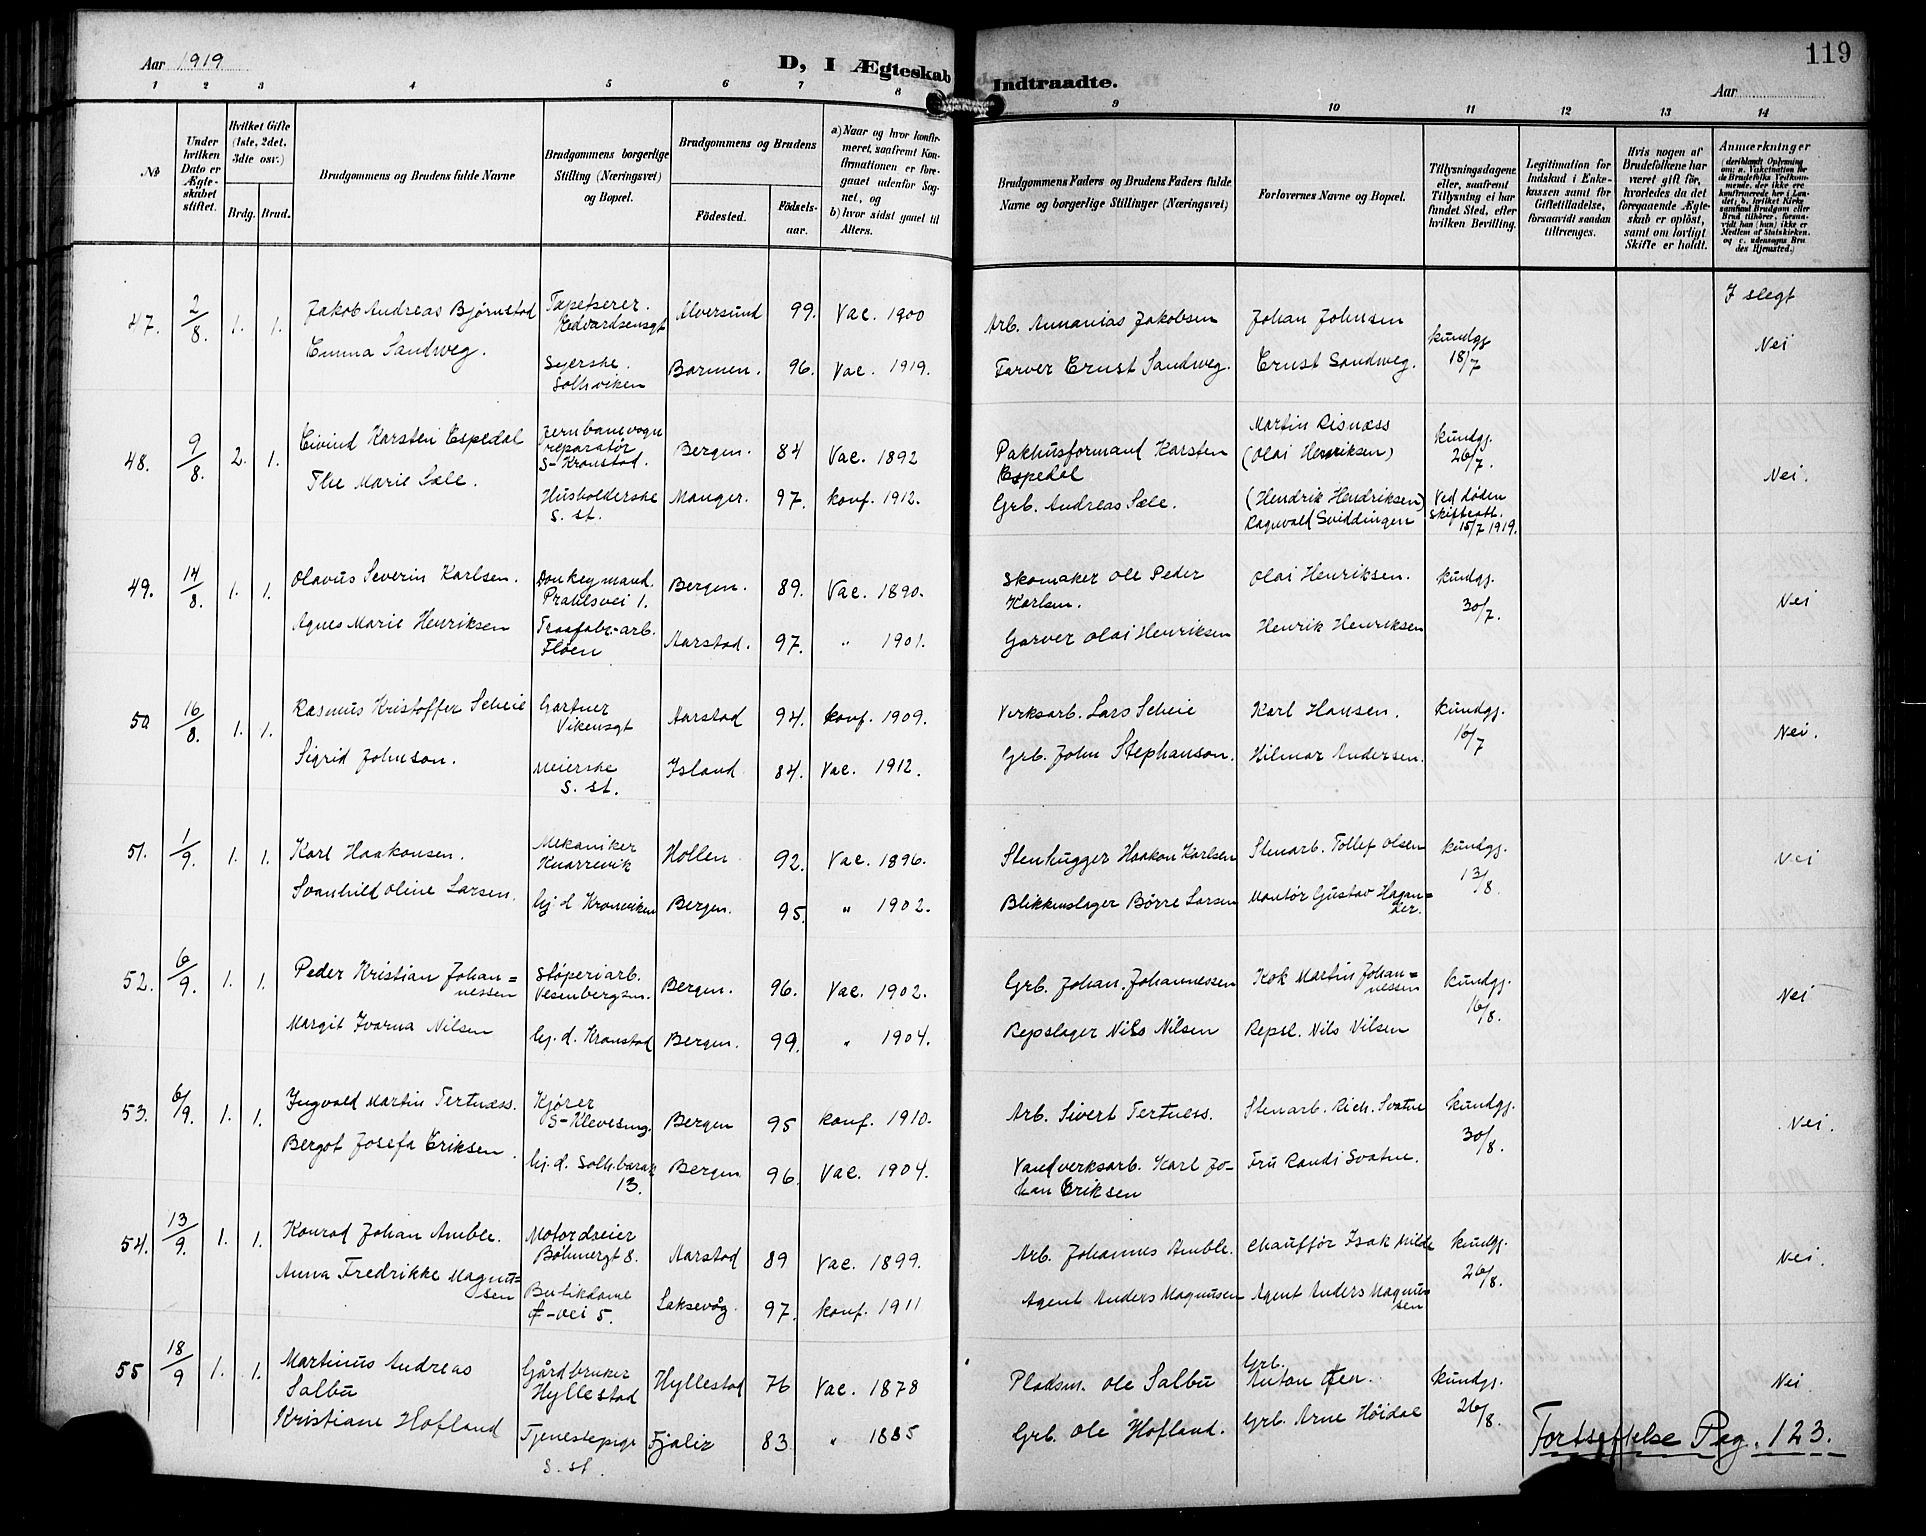 Aar 1919
D, I Ægteskab
Indtraadte.
119
Aar
1 2 3 4 5 6 7 8 9 10 11 12 13 14
No
Under hvilken Dato er Ægteskabet stiftet.
Hvilket Gifte (1ste, 2det, 3die osv.)
Brdg. Brud.
Brudgommens og Brudens fulde Navne
Brudgommens borgerlige Stilling (Næringsvei) og Bopæl.
Brudgommens og Brudens
Födested.
Födselsaar.
a) Naar og hvor konfirmeret, saafremt Konfirmationen er foregaaet udenfor Sognet, og
b) hvor sidst gaaet til Alters.
Brudgommens Faders og Brudens Faders fulde Navne og borgerlige Stillinger (Næringsvei)
Forlovernes Navne og Bopæl.
Tillysningsdagene eller, saafremt Tillysning ei har fundet Sted, efter hvilken Bevilling.
Legitimation for Indskud i Enkekassen samt for Giftetilladelse, forsaavidt saadan tiltrænges.
Hvis nogen af Brudefolkene har været gift för, hvorledes da det foregaaende Ægteskab er oplöst, samt om lovligt Skifte er holdt.
Anmærkninger
47. 2/8. 1. 1. Jakob Andreas Bjørnstad Tapetserer. Edvardsensgt Alversund 99. Vac. 1900 Arb. Annanias Jakobsen Johan Johnsen kundgj 18/7 I slegt Nei
Emma Sandweg. Syerske. Solhviken Barmen. 96. Vac. 1919. Farver Ernst Sandweg. Ernst Sandweg.
48. 9/8. 2. 1. Eivind Karsten Espedal Jernbanevogn reparatør S-Kronstad. Bergen. 84 Vac. 1892 Pakhusformand Karsten Espedal Martin Risnæss (Olai Henriksen) kundgj. 26/7. Nei.
The Marie Sæle. Husholderske S. st. Manger. 97. konf. 1912. Grb. Andreas Sæle. (Hendrik Hendriksen) Ragnvald Sviddingen Ved døden skifteatt. 15/7 1919.
49. 14/8. 1. 1. Olavus Severin Karlsen. Donkeymand. Prahlsvei 1. Bergen. 89. Vac. 1890. Skomaker Ole Peder Karlsen. Olai Henriksen. kundgj. 30/7. Nei
Agnes Marie Henriksen Traafabr-arb. Fløen Aarstad. 97. " 1901. Garver Olai Henriksen Henrik Henriksen
50 16/8. 1. 1. Rasmus Kristoffer Scheie Gartner Vikensgt Aarstad 94. konf. 1909. Verksarb. Lars Scheie Karl Hansen. kundgj. 16/7 Nei.
Sigrid Johnson. Meierske S. st. Island 84. Vac. 1912. Grb. John Stephanson. Hilmar Andersen.
51. 1/9. 1. 1. Karl Haakonsen. Mekaniker Knarrevik Hollen 92. Vac. 1896. Stenhugger Haakon Karlsen Stenarb. Tollef Olsen kundgj. 13/8. Nei
Svanhild Oline Larsen. hj. d. Kronviken Bergen. 95. " 1902. Blikkenslager Børre Larsen Montør Gustav Hagan=
52. 6/9. 1. 1. Peder Kristian Johan=nessen Støperiarb. Vesenbergsm. Bergen. 96. Vac. 1902. Grb. Johan. Johannessen Kok Martin Johan=nessen kundgj. 16/8. Nei
Margit Ivarna Nilsen hj. d. Kronstad Bergen. 99. " 1904. Repslager Nils Nilsen Repsl. Nils Nilsen
53. 6/9. 1. 1. Ingvald Martin Tertnæss. Kjører S-Klevesmg. Bergen 95 konf. 1910. Arb. Sivert Tertness. Stenarb. Rich. Svatne kundgj. 30/8. Nei.
Bergot Josefa Eriksen. hj. d. Solh.barak 13. Bergen 96. Vac. 1904. Vandverksarb. Karl Johan Eriksen Fru Randi Svatne.
54. 13/9. 1. 1. Konrad Johan Amble. Motordreier Bøhmergt 8. Aarstad 89 Vac. 1899. Arb. Johannes Amble. Chauffør Isak Milde kundgj. 26/8. Nei.
Anna Fredrikke Magnussen Butikdame -vei 5. Laksevåg. 97. konf. 1911 Agent Anders Magnusen Agent Anders Magnussen
55 18/9 1. 1. Martinus Andreas Salbu Gårdbruker Hyllestad Hyllestad 76 Vac. 1878 Pladsm. Ole Salbu Grb. Anton Øen. kundgj. 26/8. Nei
Kristiane Hofland Tjenestepige S. st. Fjaler 83. " 1885 Grb. Ole Hofland. Grb. Arne Höidal
Fortsettelse Pag. 123.